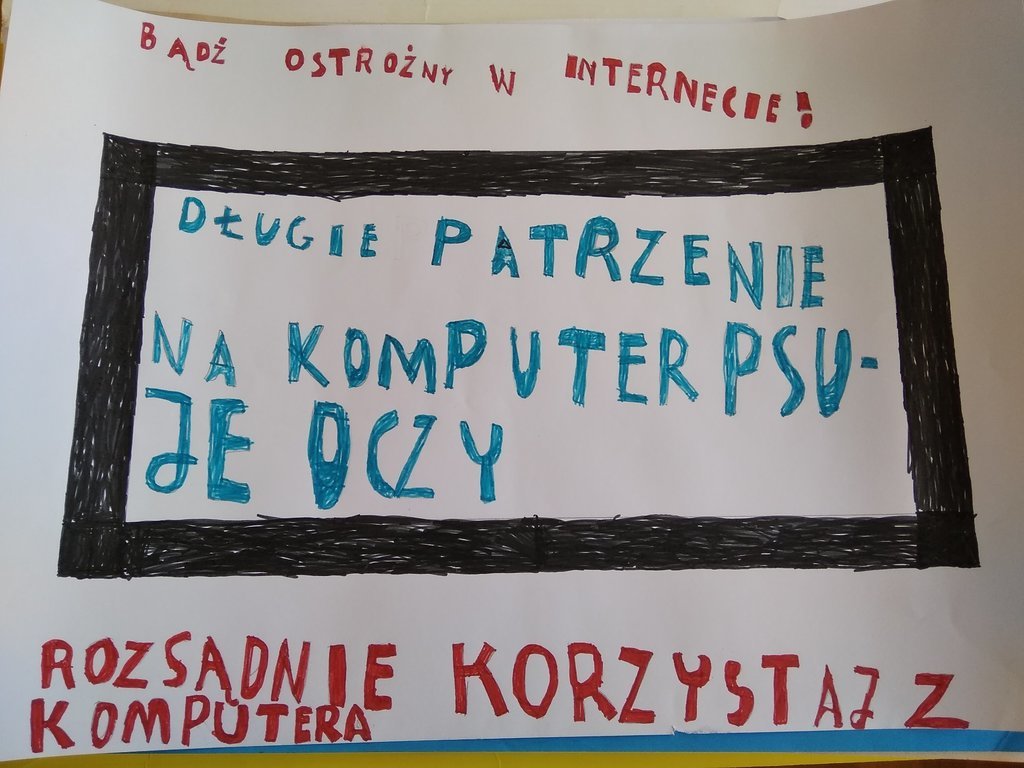 BĄDŹ OSTROŻNY W INTERNECIE!
DŁUGIE PATRZENIE
NA KOMPUTER PSU-
JE OCZY
ROZSĄDNIE KORZYSTAJ Z
KOMPUTERA